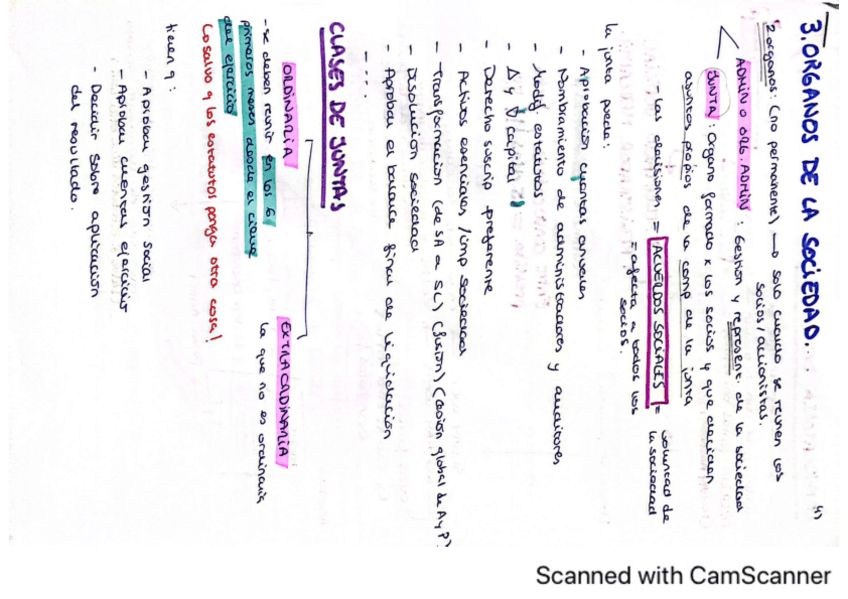 3. ORGANOS DE LA SOCIEDAD...
4)
2 organos: (no permanente) → solo cuando se reunen los
socios/accionistas.
ADMIN O ORG. ADMIN: Gestión y represent. de la sociedad
JUNTA: Organo formado x los socios y que deciden
asuntos propios de la comp de la junta
- Las decisiones = ACUERDOS SOCIALES = voluntad de
la sociedad
= afecta a todos los
socios.
la junta puede:
- Aprobación cuentas anuales
- Nombramiento de administradores y auditores
- Modif. estatutos
- Δ y ∇ capital
- Derecho suscrip preferente
- Activos esenciales /imp sociedad
- Transformacion (de SA a SL) (fusion) (cesion global de A y P)
- Disolucion sociedad
- Aprobar el balance final de liquidación
- ...
CLASES DE JUNTAS
ORDINARIA
EXTRAORDINARIA
- se deben reunir en los 6
primeros meses desde el cierre
del ejercicio
la que no es ordinaria
↳ salvo q los estatutos ponga otra cosa!
tienen q:
- Aprobar gestion social
- Aprobar cuentas ejercicio
- Decidir sobre aplicación
del resultado.
Scanned with CamScanner